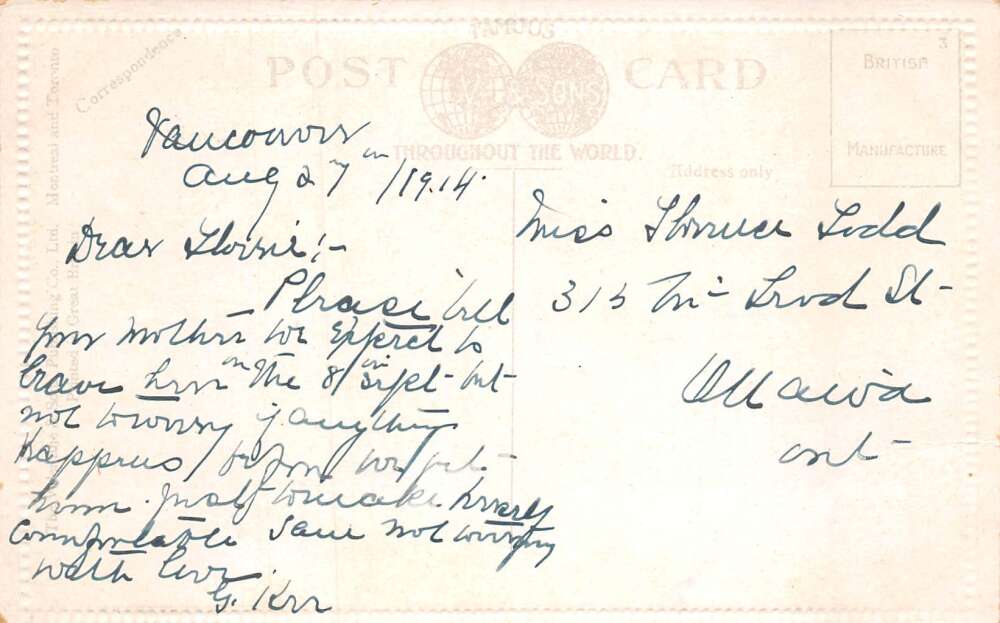 FAMOUS
POST CARD
V & SONS
THROUGHOUT THE WORLD.
Correspondence
Address only
3
BRITISH
MANUFACTURE
Montreal and Toronto
Vancouver
Aug 27th/1914.
Dear Florrie:-
Please tell
your Mother we Expect to
leave here on the 8th Sept but
not to worry if anything
Happens before we get
home. Just to make herself
Comfortable same not worrying
with love.
G. Kerr
Miss Florence Todd
315 St-
Ottawa
ont